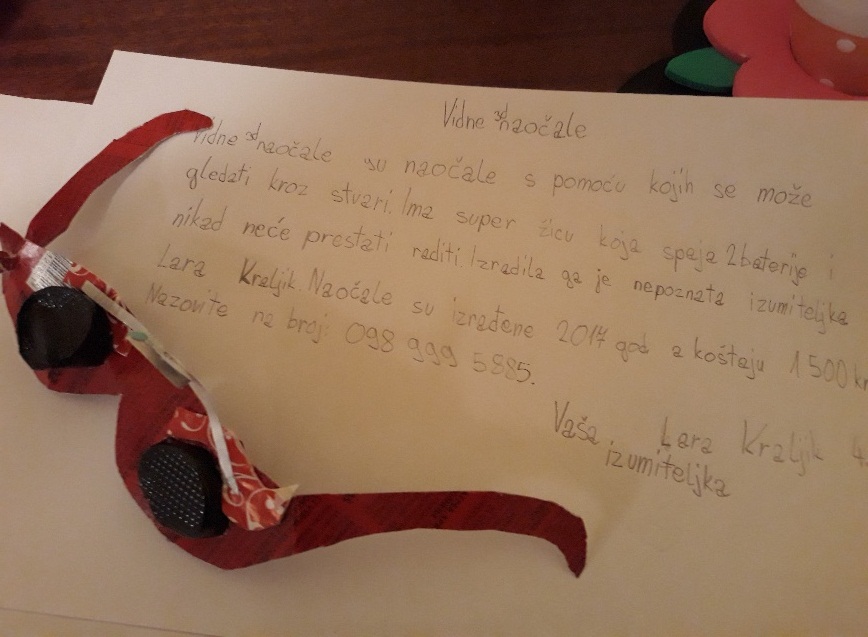 Vidne naočale
Vidne naočale su naočale s pomoću kojih se može
gledati kroz stvari. Ima super žicu koja spaja 2baterije i
nikad neće prestati raditi. Izradila ga je nepoznata izumiteljka
Lara Kraljik. Naočale su izrađene 2017 god a koštaju 1 500 kn
Nazovite na broj: 098 999 5885.
Vaša Lara Kraljik 4.
izumiteljka